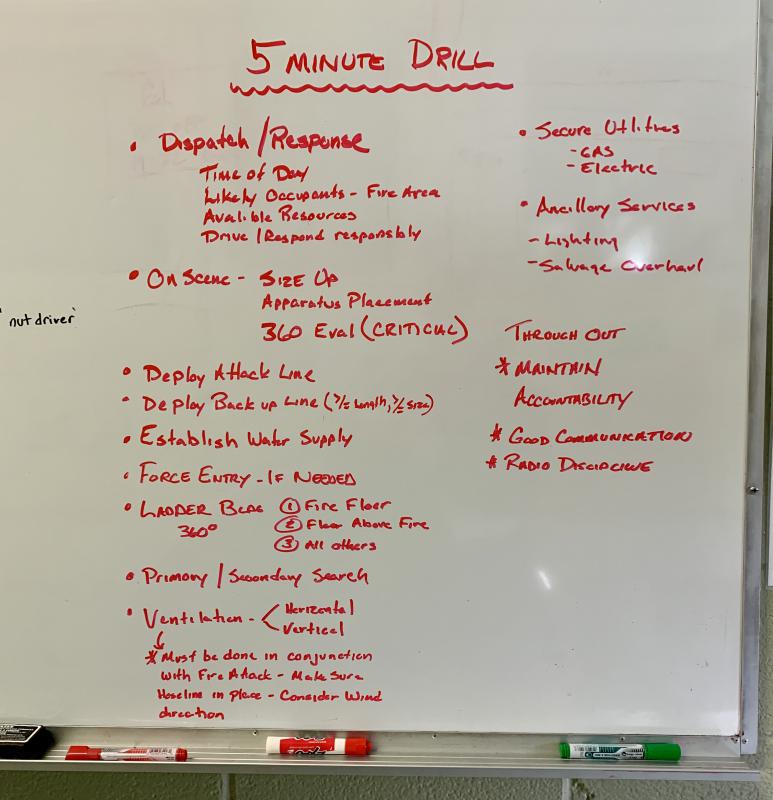 5 MINUTE DRILL
• Dispatch / Response
Time of Day
Likely Occupants - Fire Area
Avalible Resources
Drive / Respond responsibly
• On Scene - SIZE UP
Apparatus Placement
360 Eval (CRITICAL)
• Deploy Attack Line
• Deploy Back up Line (>/= Length, >/= Size)
• Establish Water Supply
• FORCE ENTRY - IF NEEDED
• LADDER BLDG ① Fire Floor
360° ② Floor Above Fire
③ All others
• Primary / Secondary Search
• Ventilation - < Horizontal
Vertical
* Must be done in conjunction
with Fire Attack - Make Sure
Hoseline in place - Consider Wind
direction
• Secure Utilities
- GAS
- Electric
• Ancillary Services
- Lighting
- Salvage Overhaul
THROUGH OUT
* MAINTAIN
ACCOUNTABILITY
* GOOD COMMUNICATION
* RADIO DISCIPLINE
nut driver